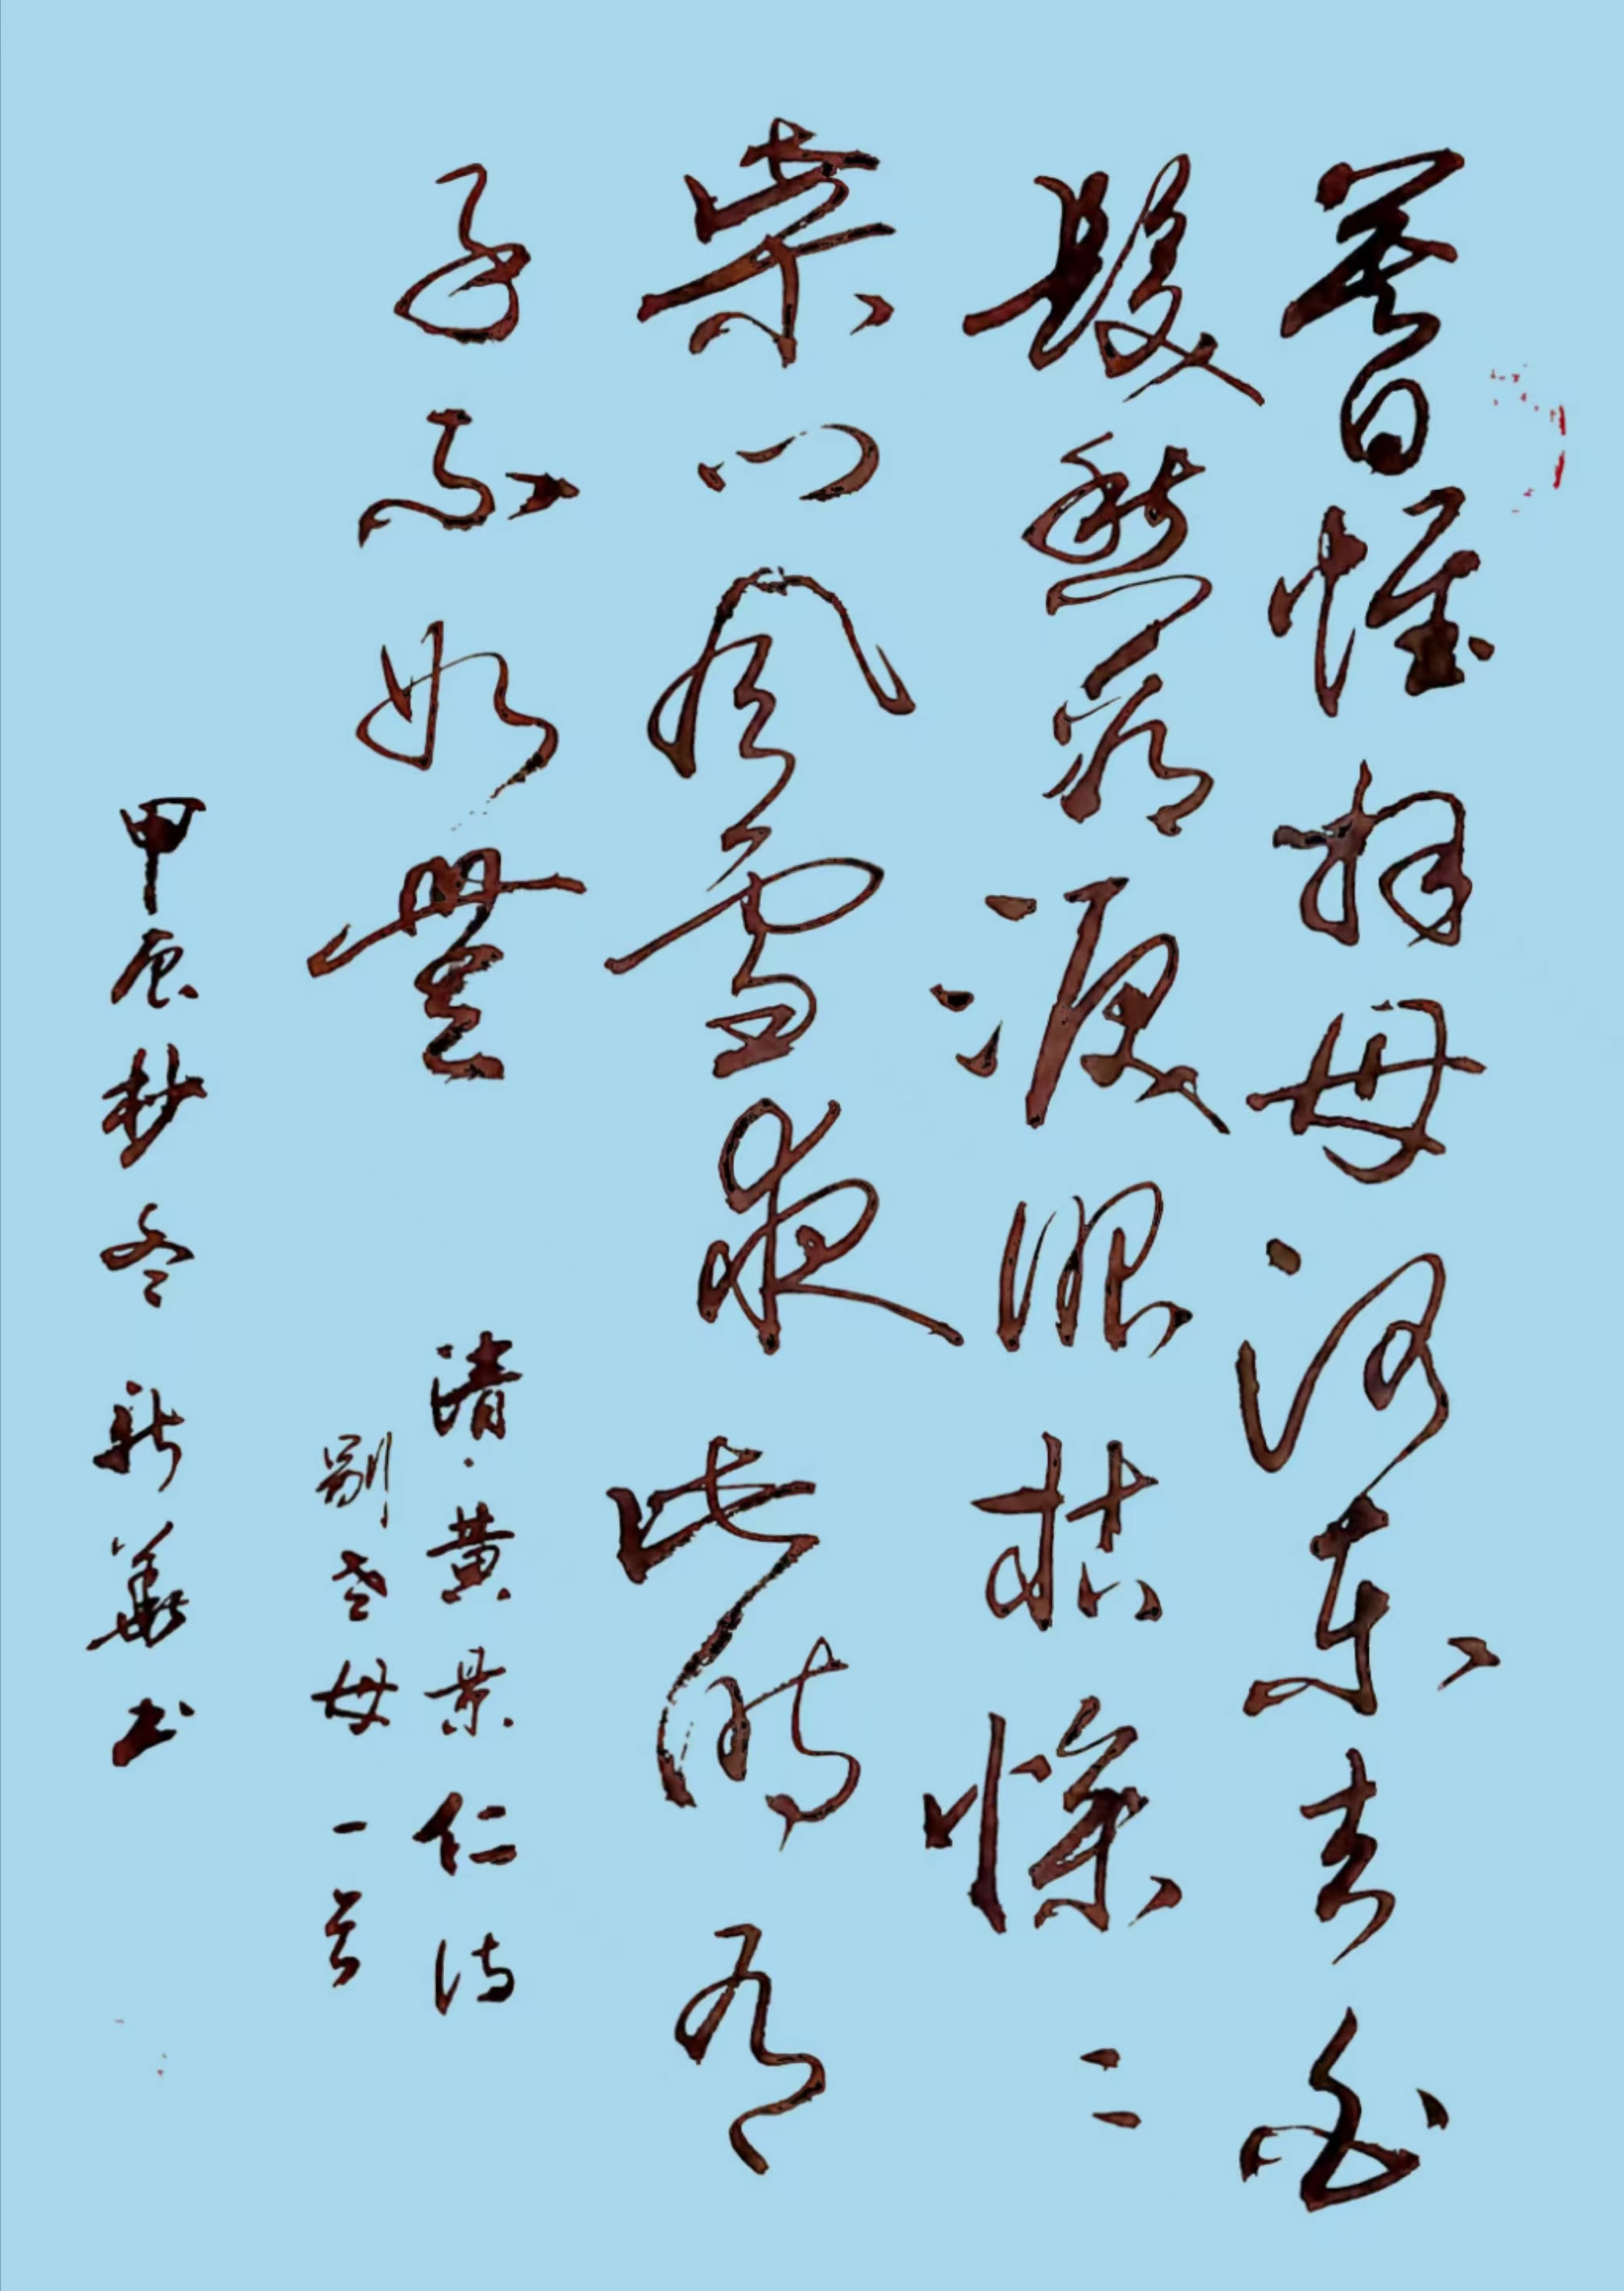 帷拜母河梁去白
髮愁看淚眼枯惨々
柴门风雪夜此时有
子不如無
清·黄景仁诗
别老母一首
甲辰杪冬 新華书